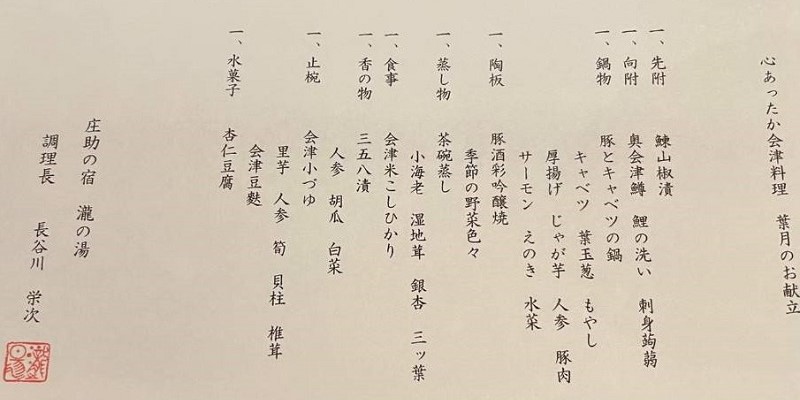 心あったか会津料理 葉月のお献立
一、先附 鰊山椒漬
一、向附 奥会津鱒 鯉の洗い 刺身蒟蒻
一、鍋物 豚とキャベツの鍋
キャベツ 葉玉葱 もやし
厚揚げ じゃが芋 人参 豚肉
サーモン えのき 水菜
一、陶板 豚酒彩吟醸焼
季節の野菜色々
一、蒸し物 茶碗蒸し
小海老 湿地茸 銀杏 三ッ葉
一、食事 会津米こしひかり
一、香の物 三五八漬
人参 胡瓜 白菜
一、止椀 会津小づゆ
里芋 人参 筍 貝柱 椎茸
会津豆麩
一、水菓子 杏仁豆腐
庄助の宿 瀧の湯
調理長 長谷川 栄次